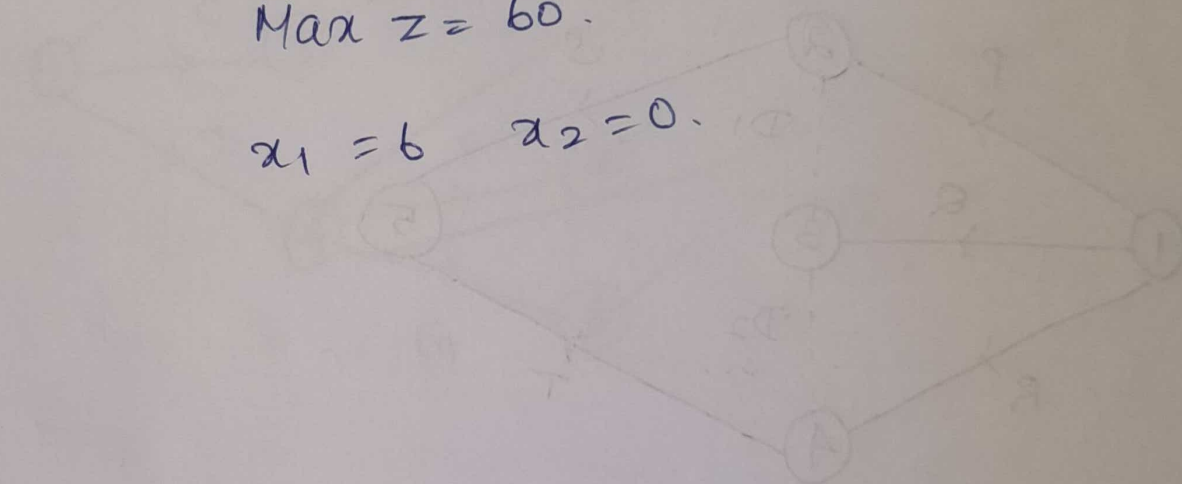 Max Z = 60.
x1 = 6 x2 = 0.